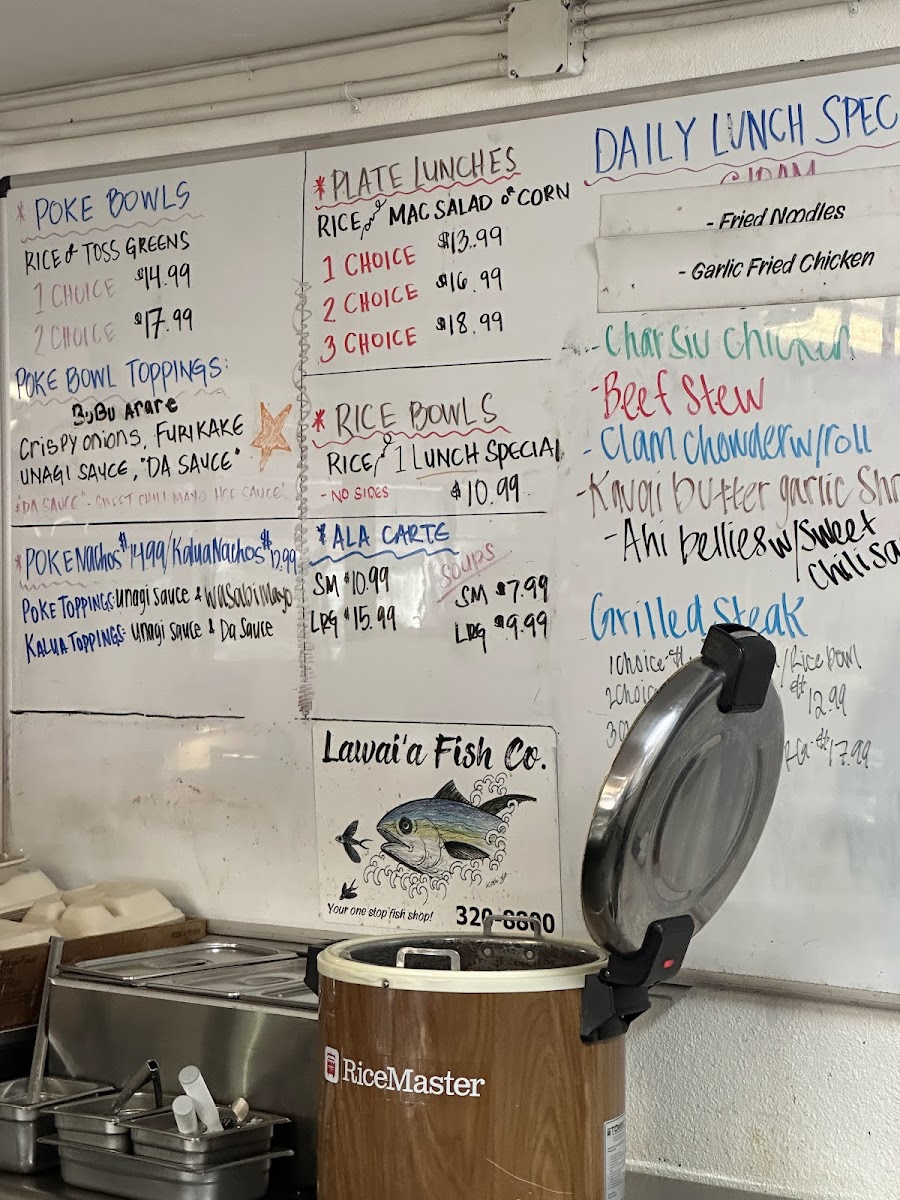 * POKE BOWLS
RICE & TOSS GREENS
1 CHOICE $14.99
2 CHOICE $17.99
POKE BOWL TOPPINGS:
BUBU ARARE
CRISPY ONIONS, FURIKAKE
UNAGI SAUCE, "DA SAUCE"
"DA SAUCE" - SWEET CHILI MAYO HCC SAUCE"
* POKE Nachos $14.99/Kalua Nachos $12.99
POKE TOPPINGS: unagi sauce & Wasabi Mayo
KALUA TOPPINGS: unagi sauce & Da Sauce
* PLATE LUNCHES
RICE and MAC SALAD or CORN
1 CHOICE $13.99
2 CHOICE $16.99
3 CHOICE $18.99
* RICE BOWLS
RICE & 1 LUNCH SPECIAL
- NO SIDES $10.99
* ALA CARTE
SM $10.99
LRG $15.99
SOUPS
SM $7.99
LRG $9.99
DAILY LUNCH SPEC
- Fried Noodles
- Garlic Fried Chicken
- Char Siu Chicken
- Beef Stew
- Clam Chowder w/roll
- Kauai butter garlic Shr
- Ahi bellies w/sweet
chili sa
Grilled Steak
1 Choice $1
/Rice bowl
2 Choic
$12.99
$17.99
Lawai'a Fish Co.
Your one stop fish shop! 320-8800
RiceMaster